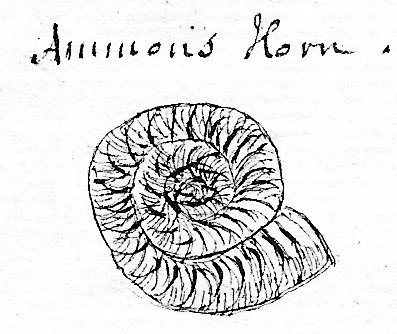 Ammonis Horn .